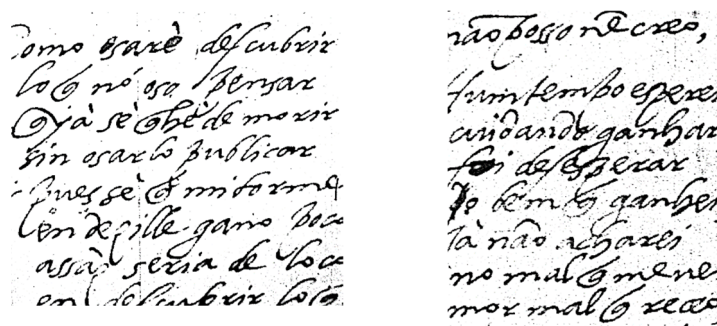 Como osarè descubrir
lo q̃ nó oso pensar
q̃ ya sè q̃ hè de morir
sin osarlo publicar
pues sè q̃ mi torme
en dezille gano poco
assàs seria de loco
en descubrir lo q̃
não posso nẽ creo,
Hum tempo esperei
cuidando ganhar
foi desesperar
o bem q̃ ganhei
Ia não acharei
no mal q̃ me ve
mor mal q̃ receo